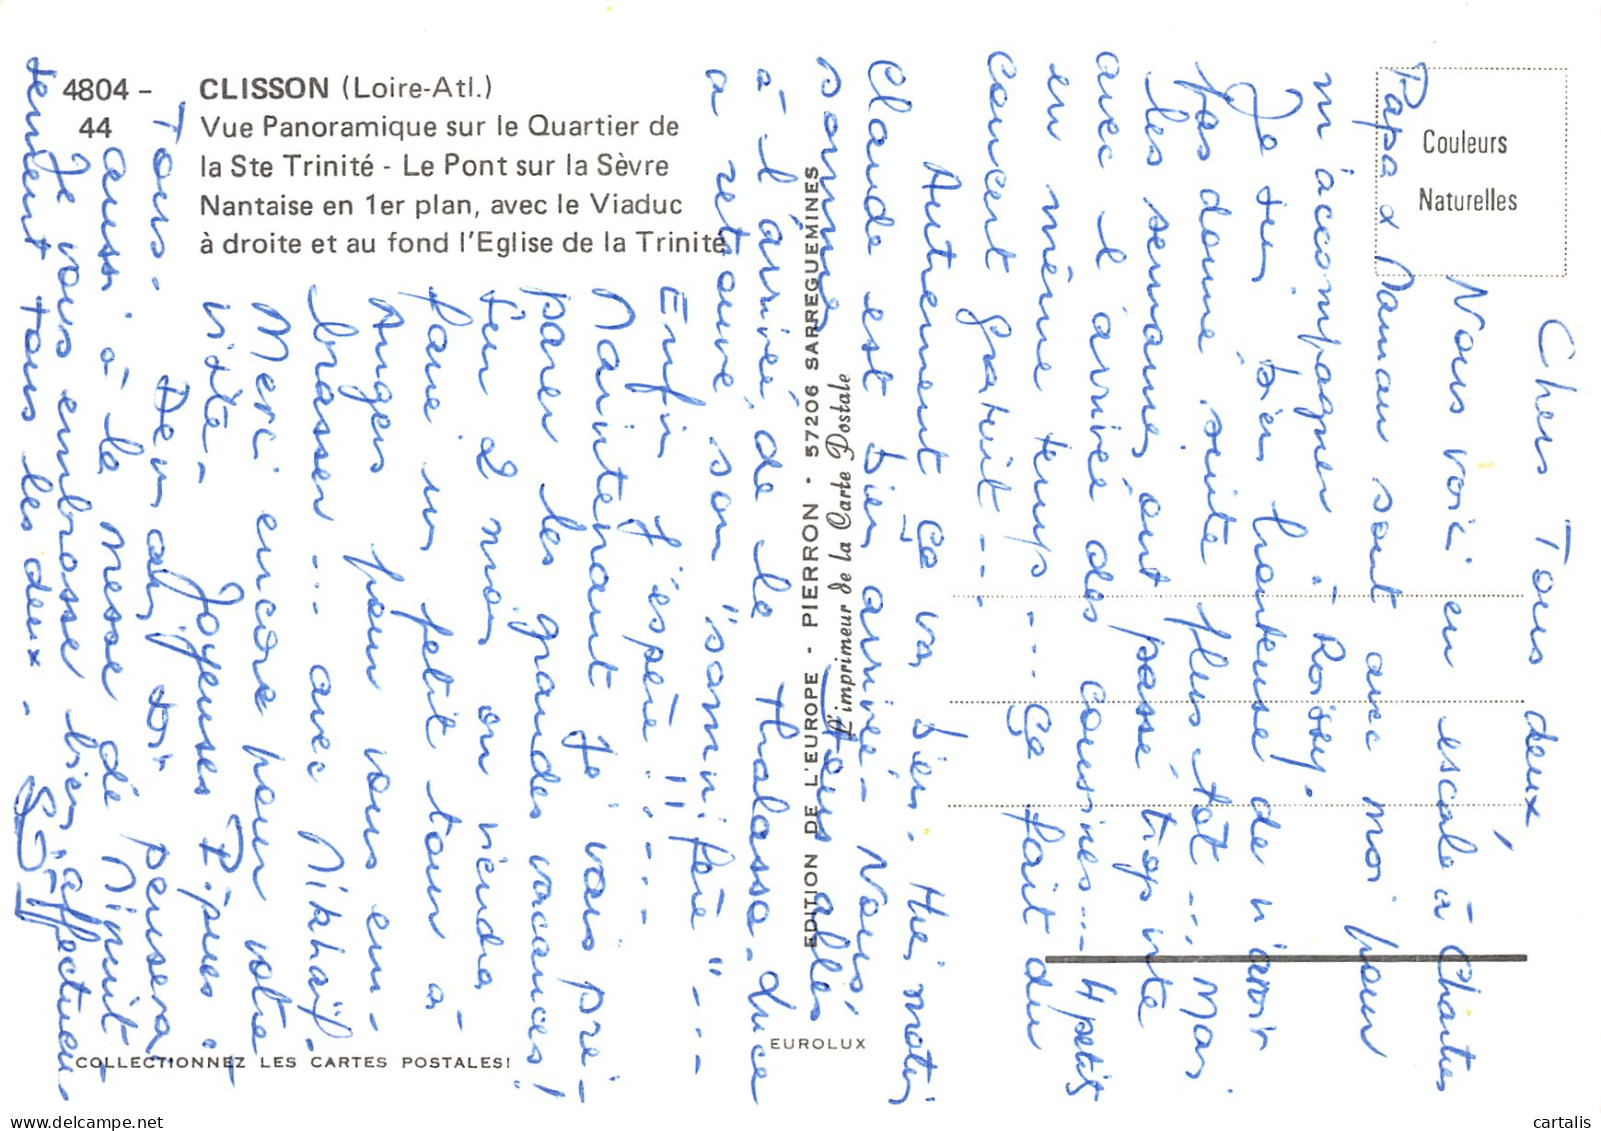 4804 - CLISSON (Loire-Atl.)
44 Vue Panoramique sur le Quartier de
la Ste Trinité - Le Pont sur la Sèvre
Nantaise en 1er plan, avec le Viaduc
à droite et au fond l'Eglise de la Trinité
Couleurs
Naturelles
EDITION DE L'EUROPE - PIERRON - 57206 SARREGUEMINES
L'imprimeur de la Carte Postale
EUROLUX
COLLECTIONNEZ LES CARTES POSTALES!
Chers Tous deux,
Nous voici en escale à Chartres
Papa & Maman sont avec moi pour
m'accompagner à Roissy.
Je suis bien honteuse de n'avoir
pas donné suite plus tôt... Mais
les semaines ont passé trop vite
avec l'arrivée des cousines... 4 petits
en même temps... Ça fait du
concert gratuit...
Autrement ça va bien. Hier matin
Claude est bien arrivé - Nous
sommes tous allés
à l'arrivée de le Thalassa. Luce
a retrouvé son "sammi père"...
Enfin j'espère!!...
Maintenant je vais pré-
parer les grandes vacances!
Sur 2 mois on viendra
faire un petit tour à
Angers pour vous em-
brasser... avec Mikhaïl.
Merci encore pour votre
visite -
Joyeuses Pâques à
Tous.
Demain soir penserai
aussi à la messe de Minuit
Je vous embrasse bien affectueu-
sement tous les deux.